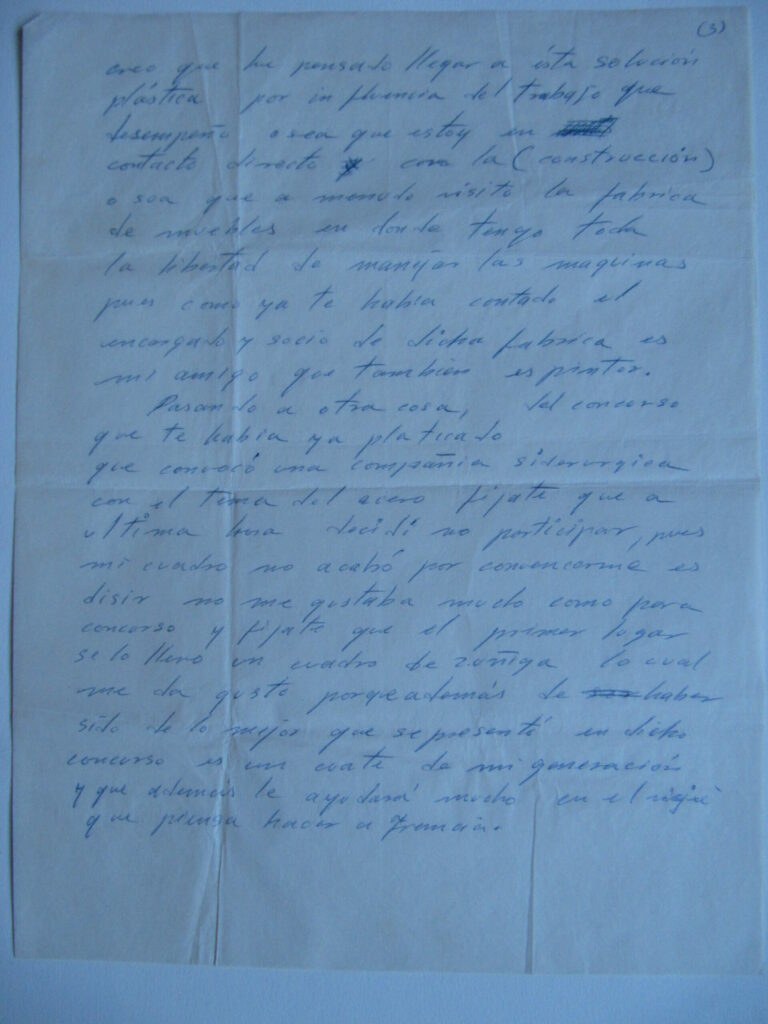 (3)
creo que he pensado llegar a ésta solución
plástica por influencia del trabajo que
desempeño osea que estoy en
contacto directo y con la (construcción)
o sea que a menudo visito la fabrica
de muebles en donde tengo toda
la libertad de manejar las maquinas
pues como ya te habia contado el
encargado y socio de dicha fabrica es
mi amigo que también es pintor.
Pasando a otra cosa, del concurso
que te habia ya platicado
que convocó una compañia siderurgica
con el tema del acero fijate que a
ultima hora decidí no participar, pues
mi cuadro no acabó por convencerme es
disir no me gustaba mucho como para
concurso y fijate que el primer lugar
se lo llevo un cuadro de zuñiga lo cual
me da gusto porque además de haber
sido de lo mejor que se presentó en dicho
concurso es un cuate de mi generación
y que además le ayudará mucho en el viaje
que piensa hacer a Francia.